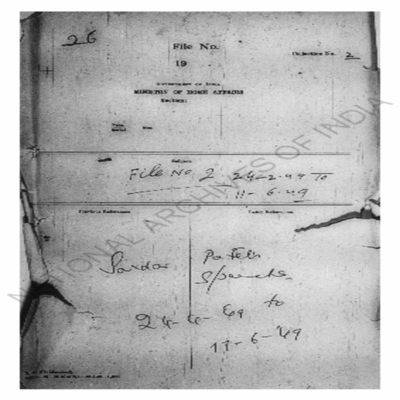 26
File No.
Collection No. 2
19
GOVERNMENT OF INDIA
MINISTRY OF HOME AFFAIRS
Section:
Subject
File No 2 24-2-49 To
11-6-49
Previous References
Later References
Sardar Patel's
Speeches
24-4-49 to
11-6-49
NATIONAL ARCHIVES OF INDIA